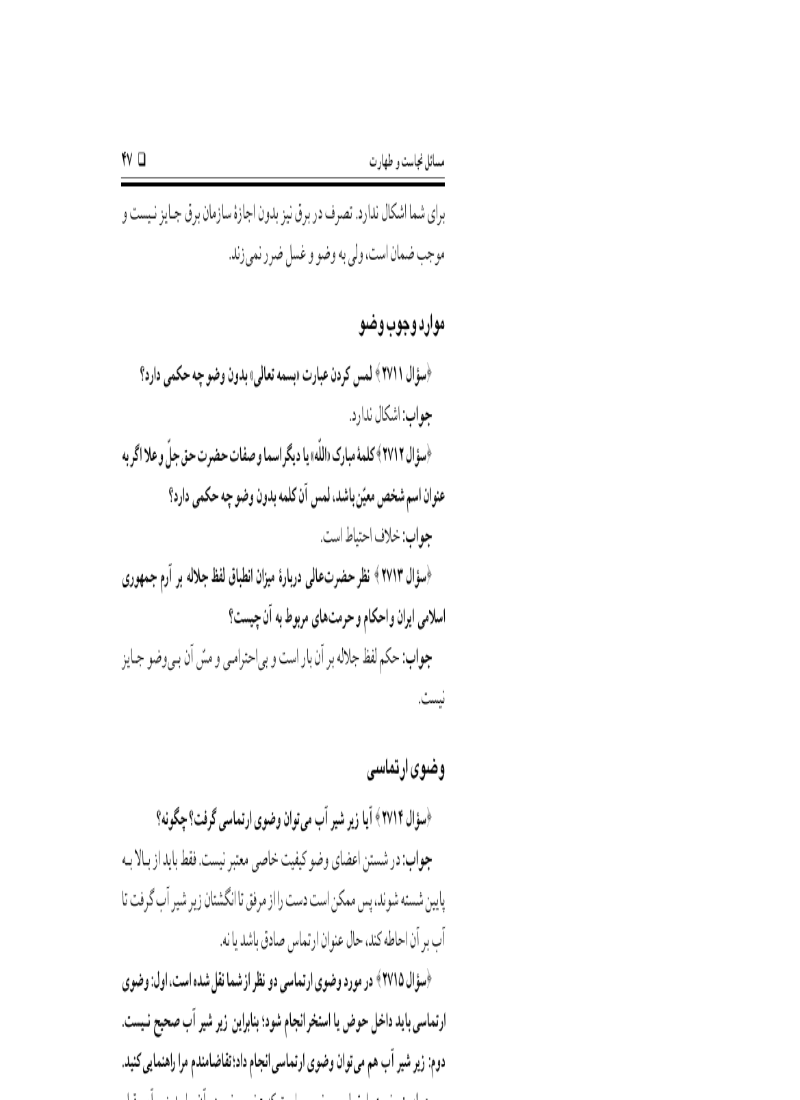 مسائل نجاست و طهارت ❏ ۴۷
برای شما اشکال ندارد. تصرف در برق نیز بدون اجازهٔ سازمان برق جـایز نـیست و
موجب ضمان است، ولی به وضو و غسل ضرر نمی‌زند.
موارد وجوب وضو
﴿سؤال ۲۷۱۱﴾ لمس کردن عبارت «بسمه تعالی» بدون وضو چه حکمی دارد؟
جواب: اشکال ندارد.
﴿سؤال ۲۷۱۲﴾ کلمهٔ مبارک «اللّه» یا دیگر اسما و صفات حضرت حق جلّ و علا اگر به
عنوان اسم شخص معیّن باشد، لمس آن کلمه بدون وضو چه حکمی دارد؟
جواب: خلاف احتیاط است.
﴿سؤال ۲۷۱۳﴾ نظر حضرت‌عالی دربارهٔ میزان انطباق لفظ جلاله بر آرم جمهوری
اسلامی ایران و احکام و حرمت‌های مربوط به آن چیست؟
جواب: حکم لفظ جلاله بر آن بار است و بی‌احترامـی و مسّ آن بـی‌وضو جـایز
نیست.
وضوی ارتماسی
﴿سؤال ۲۷۱۴﴾ آیا زیر شیر آب می‌توان وضوی ارتماسی گرفت؟ چگونه؟
جواب: در شستن اعضای وضو کیفیت خاصی معتبر نیست. فقط باید از بـالا بـه
پایین شسته شوند، پس ممکن است دست را از مرفق تا انگشتان زیر شیر آب گرفت تا
آب بر آن احاطه کند، حال عنوان ارتماس صادق باشد یا نه.
﴿سؤال ۲۷۱۵﴾ در مورد وضوی ارتماسی دو نظر از شما نقل شده است، اول: وضوی
ارتماسی باید داخل حوض یا استخر انجام شود؛ بنابراین زیر شیر آب صحیح نـیست.
دوم: زیر شیر آب هم می‌توان وضوی ارتماسی انجام داد؛ تقاضامندم مرا راهنمایی کنید.